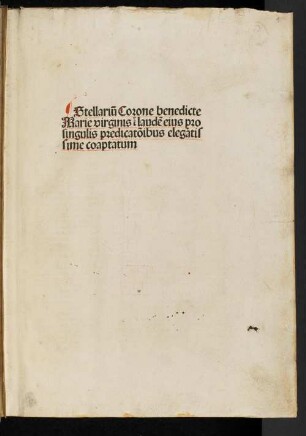 Stellariū Corone benedicte
Marie virginis ī laudē eius pro
singulis predicatōibus elegātis
sime coaptatum